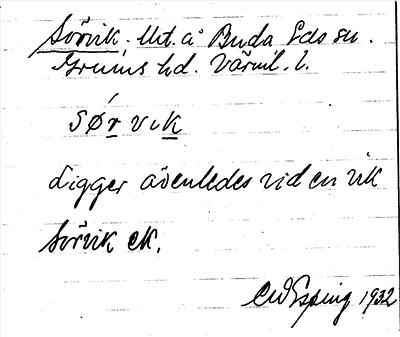 Sörvik. Utt. å Buda Eds sn.
Grums hd. Värml. l.
sǿr vik
Ligger ävenledes vid en vik
Sörvik ek.
CW Esping 1932